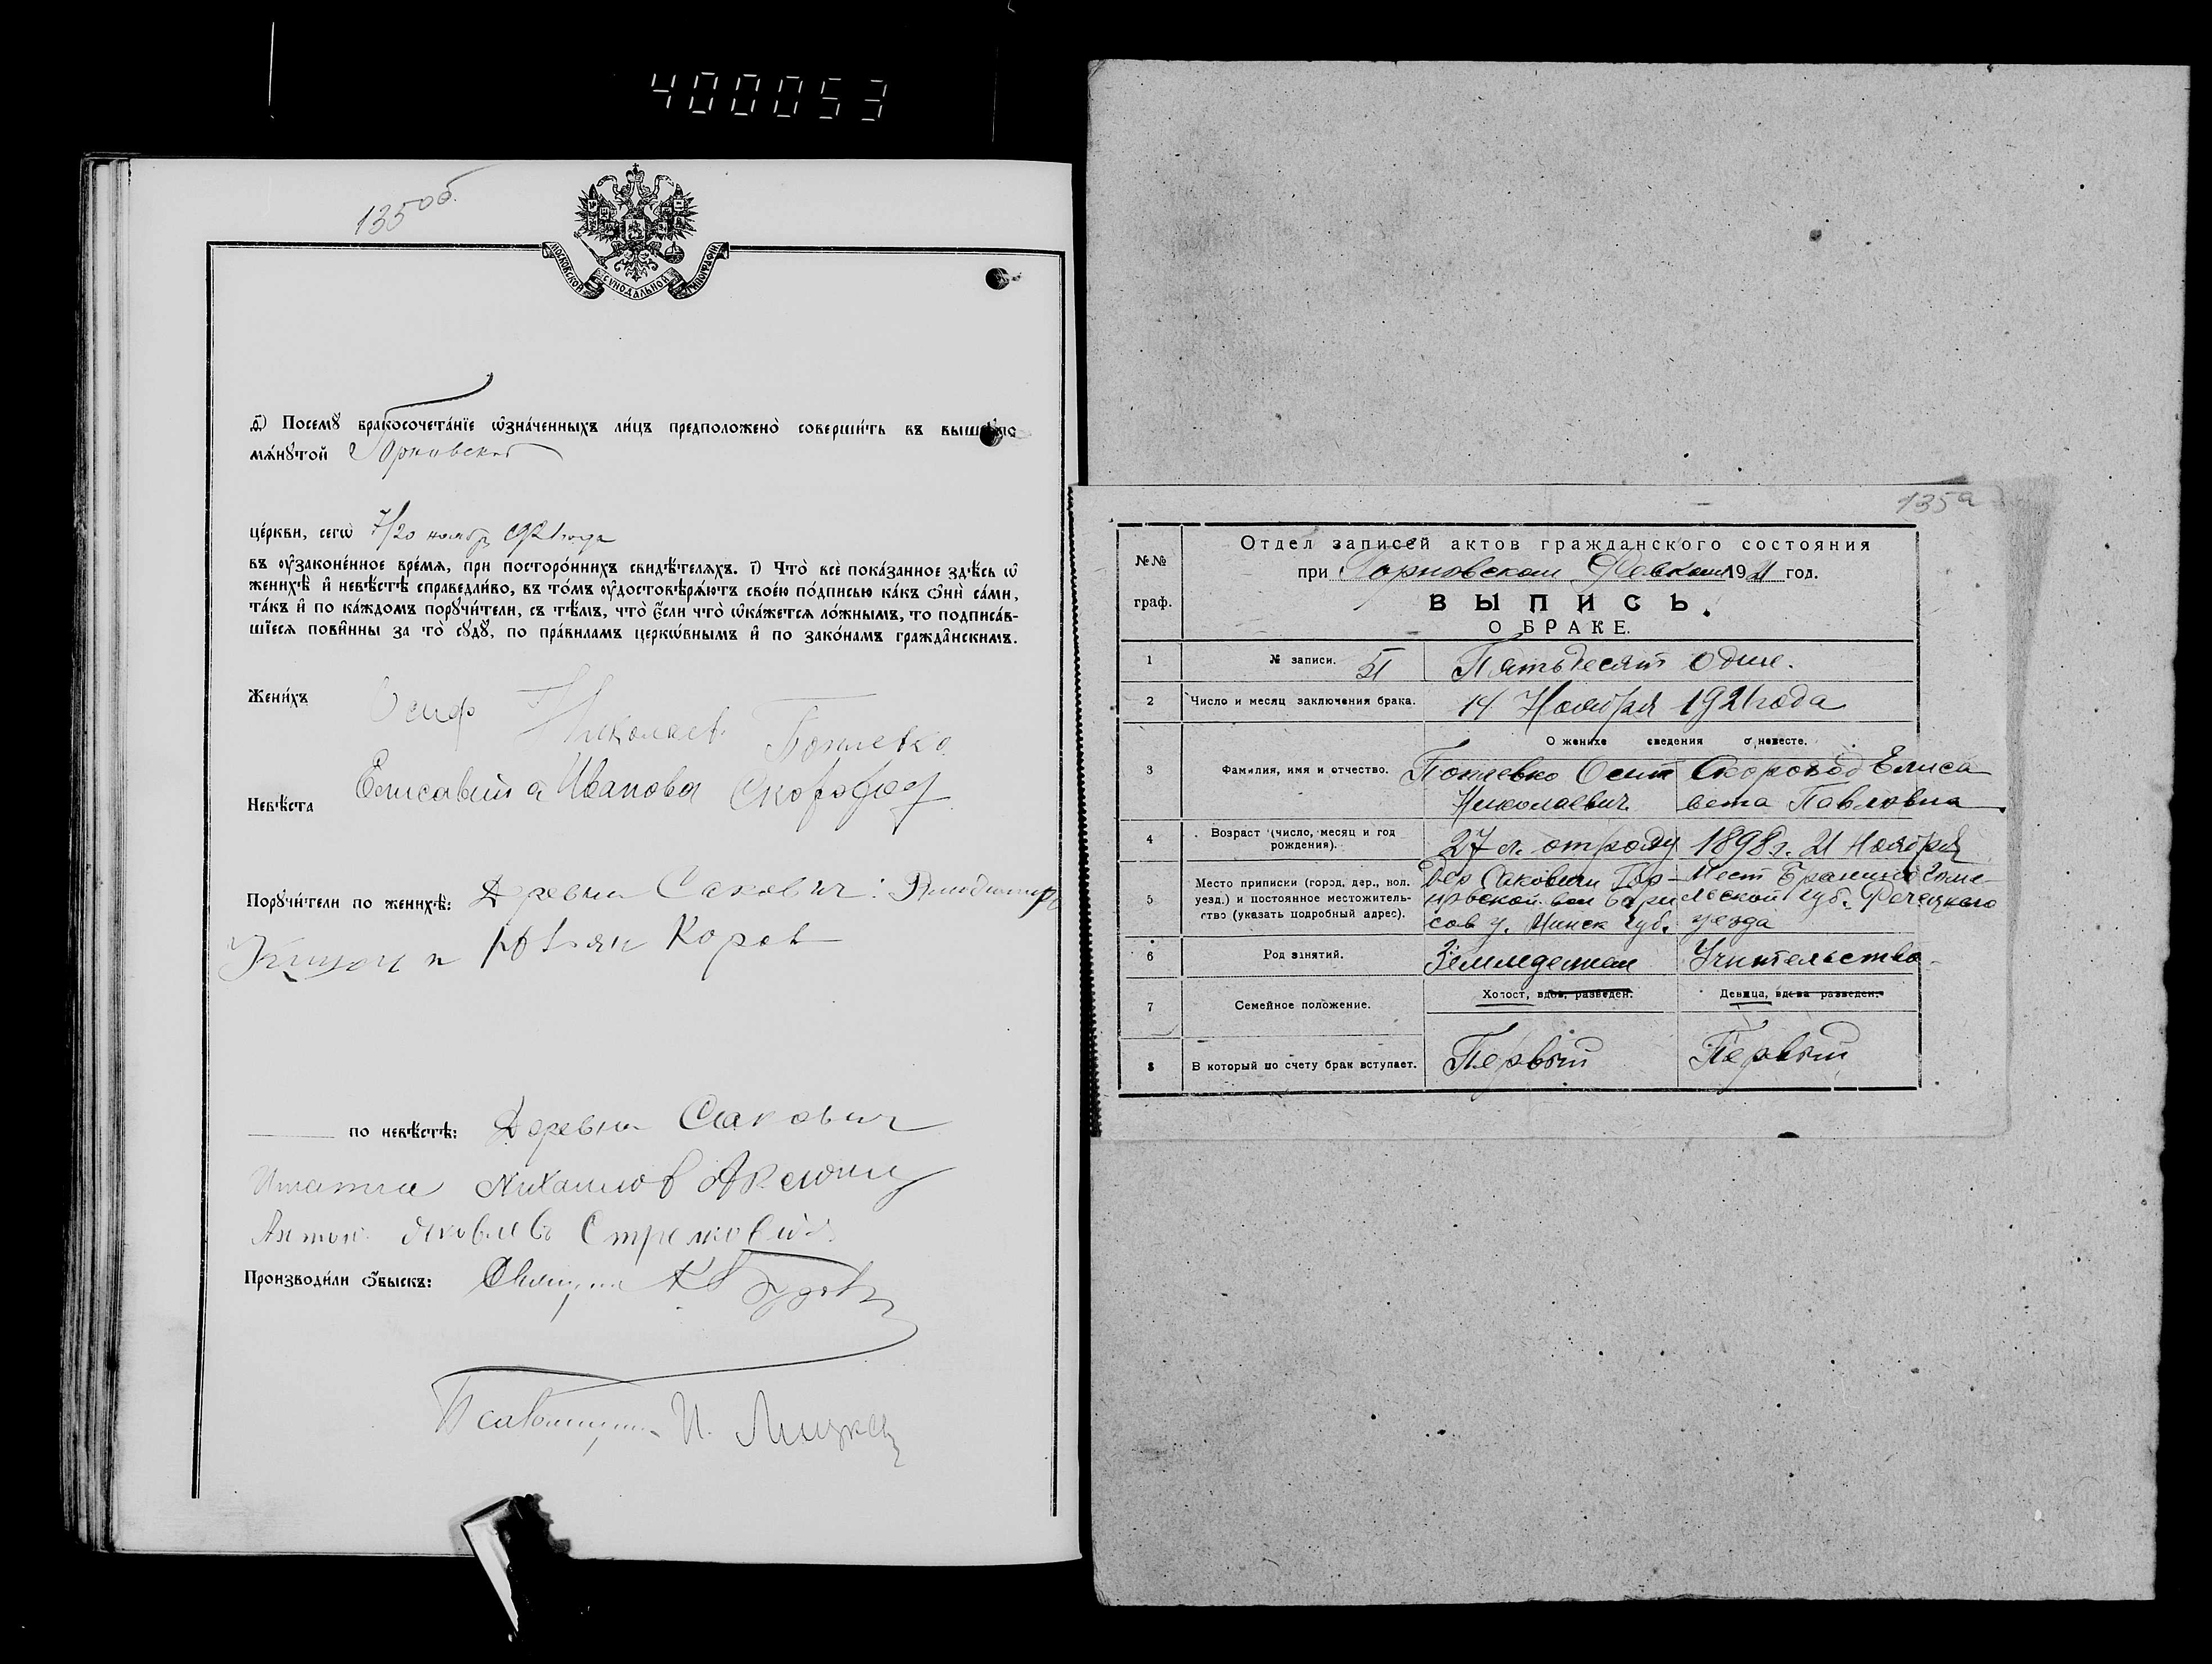 400053
135об.
МОСКОВСКОЙ СУНОДАЛЬНОЙ ТИПОГРАФИИ
д҃) Посемꙋ̀ бракосочета́нїе ѡ҆зна́ченныхъ ли́цъ предположено̀ соверши́ть въ вышепо
мѧ́нꙋтой Горновской
це́ркви, сегѡ̀ 7/20 ноябр 1921 года
въ ᲂу҆зако́нённое вре́мѧ, при посторо́ннихъ свидѣ́телѧхъ. і҃) Что̀ всѐ пока́занное здѣ́сь ѡ҆
женихѣ̀ и҆ невѣ́стѣ справедли́во, въ то́мъ ᲂу҆достовѣрѧ́ютъ свое́ю по́дписью ка́къ ѻ҆нѝ са́ми,
та́къ и҆ по ка́ждомъ порꙋчи́тели, съ тѣ́мъ, что̀ є҆́сли что̀ ѡ҆ка́жетсѧ ло́жнымъ, то подписа́в-
шїесѧ пови́нны за то̀ сꙋдꙋ̀, по пра́виламъ церкѡ́внымъ и҆ по зако́намъ гражда́нскимъ.
Жени́хъ Осиф Николаев Поплевко
Невѣ́ста Елисавита Иванова Скороход
Порꙋчи́тели по женихѣ̀: Деревни Сакович:
и Коров
по невѣ́стѣ: Деревни Сакович
Игнатий Михаилов Аксючиц
Антон Яковлевъ
Производи́ли ѻ҆́быскъ: Священ
Псаломщик И.
135а
№№ граф.
Отдел записей актов гражданского состояния
при Горновском Ревкоме 1921 год.
ВЫПИСЬ.
О БРАКЕ.
1 № записи. 51 Пятьдесят один.
2 Число и месяц заключения брака. 14 Ноября 1921 года
О женихе сведения о невесте.
3 Фамилия, имя и отчество. Поплевко Осип Скороход Елиса
Николаевич вета Павловна
4 Возраст (число, месяц и год рождения). 27 л. от роду 1898 г. 21 Ноября
5 Место приписки (город, дер., вол. Дер Саковичи Гор- Мест Брагина Гоме-
уезд.) и постоянное местожитель- новской вол Бори льской губ. Речецкого
ство (указать подробный адрес). сов у. Минск губ. уезда
6 Род занятий. Земледелием Учительство
7 Семейное положение. Холост, вдов, разведен. Девица, вдова разведен.
8 В который по счету брак вступает. Первый Первый